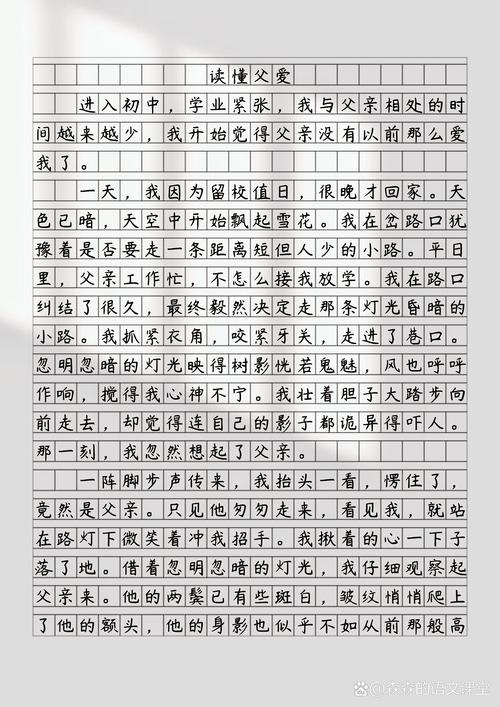 读懂父爱
进入初中，学业紧张，我与父亲相处的时
间越来越少，我开始觉得父亲没有以前那么爱
我了。
一天，我因为留校值日，很晚才回家。天
色已暗，天空中开始飘起雪花。我在岔路口犹
豫着是否要走一条距离短但人少的小路。平日
里，父亲工作忙，不怎么接我放学。我在路口
纠结了很久，最终毅然决定走那条灯光昏暗的
小路。我抓紧衣角，咬紧牙关，走进了巷口。
忽明忽暗的灯光映得树影恍若鬼魅，风也呼呼
作响，搅得我心神不宁。我壮着胆子大踏步向
前走去，却觉得连自己的影子都诡异得吓人。
那一刻，我忽然想起了父亲。
一阵脚步声传来，我抬头一看，愣住了，
竟然是父亲。只见他匆匆走来，看见我，就站
在路灯下微笑着冲我招手。我揪着的心一下子
落了地。借着忽明忽暗的灯光，我仔细观察起
父亲来。他的两鬓已有些斑白，皱纹悄悄爬上
了他的额头，他的身影也似乎不如从前那般高
@森森的语文课堂